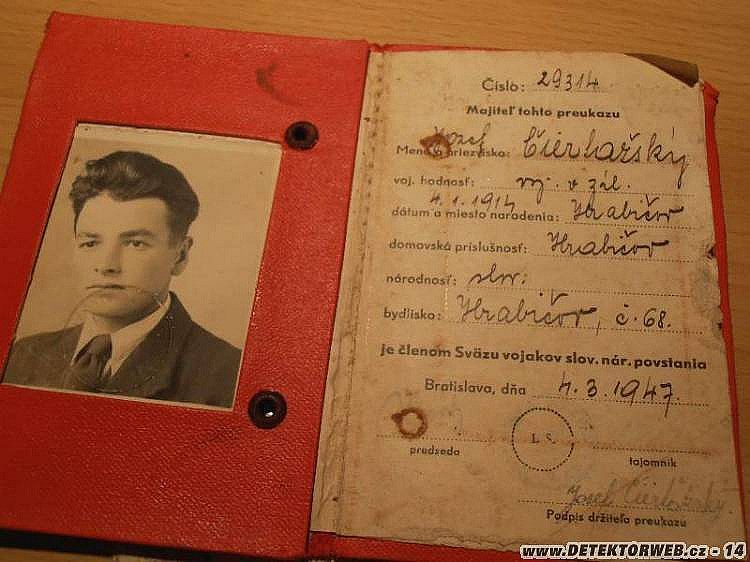 Číslo: 29314
Majiteľ tohto preukazu
Meno a priezvisko: Jozef Čierťažský
voj. hodnosť: voj. v zál.
dátum a miesto narodenia: 4.1.1914 Hrabičov
domovská príslušnosť: Hrabičov
národnosť: slov.
bydlisko: Hrabičov, č. 68.
je členom Sväzu vojakov slov. nár. povstania
Bratislava, dňa 4.3.1947.
L. S.
predseda tajomník
Jozef
Podpis držiteľa preukazu
www.DETEKTORWEB.cz - 14